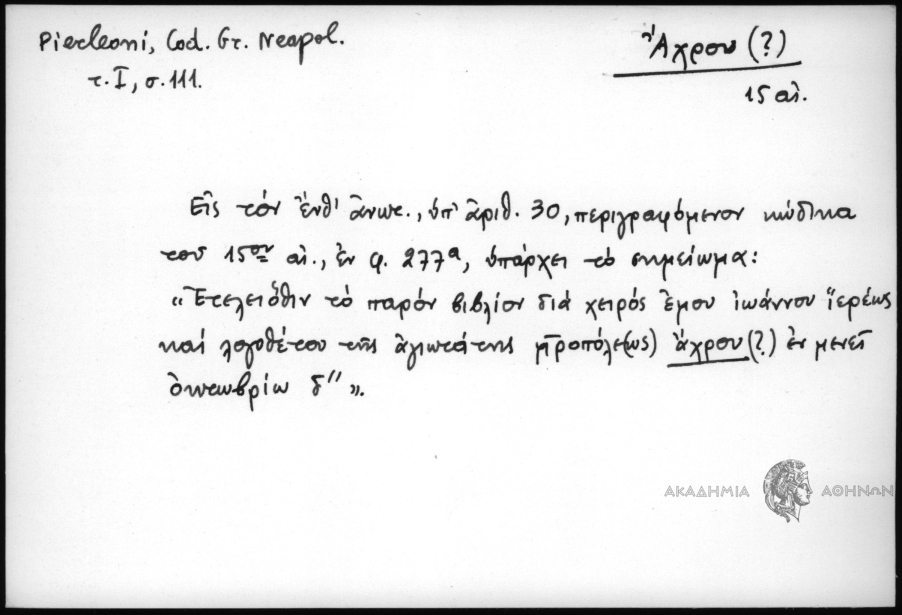 Pierleoni, Cod. Gr. Neapol.
τ. I, σ. 111.
Ἄχρου (?)
15 αἰ.
Εἰς τόν ἔνθ' ἄνωτ., ὑπ' ἀριθ. 30, περιγραφόμενον κώδικα
τοῦ 15ου αἰ., ἐν φ. 277α, ὑπάρχει τό σημείωμα:
«Ἐτελειόθην τό παρόν βιβλίον διά χειρός ἐμου ἰωάννου ἱερέως
καί λογοθέτου τῆς ἁγιωτάτης μτροπόλε(ως) ἄχρου (?) ἐν μενεῖ
ὀκτωβρίω δ'' ».
ΑΚΑΔΗΜΙΑ ΑΘΗΝΩΝ